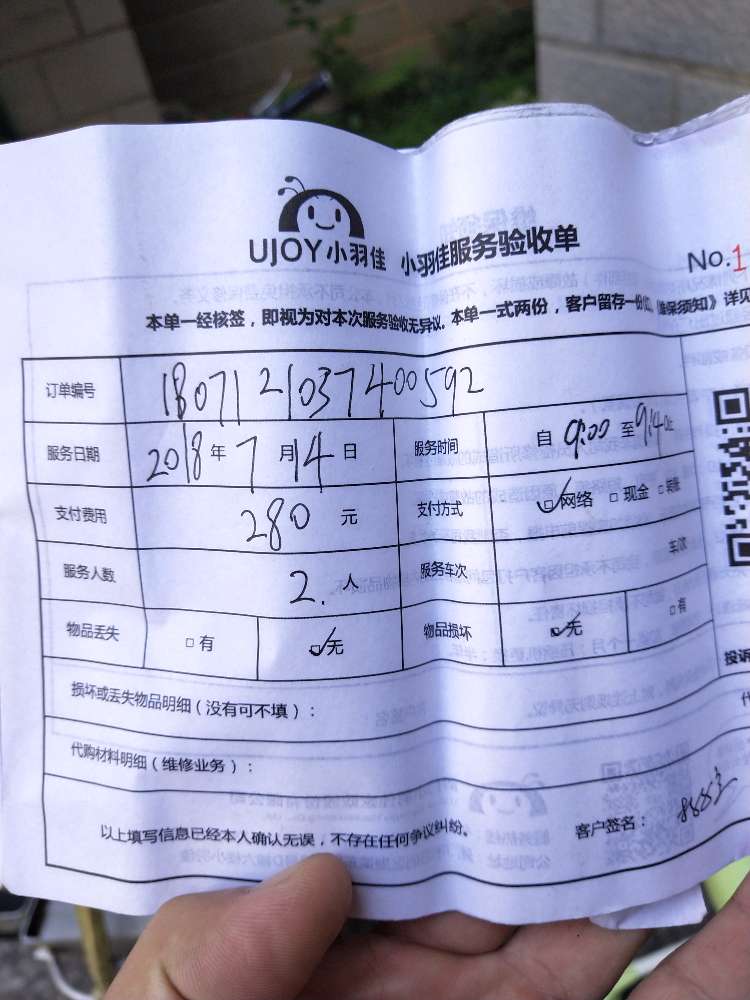 UJOY小羽佳 小羽佳服务验收单
No.1
本单一经核签，即视为对本次服务验收无异议。本单一式两份，客户留存一份。《维保须知》详见
订单编号 1807121037400592
服务日期 2018年7月14日 服务时间 自9:00至9:40止
支付费用 280元 支付方式 ☑网络 □现金 □转账
服务人数 2.人 服务车次 车次
物品丢失 □有 ☑无 物品损坏 ☑无 □有
投诉
损坏或丢失物品明细（没有可不填）：
代购材料明细（维修业务）：
以上填写信息已经本人确认无误，不存在任何争议纠纷。 客户签名：